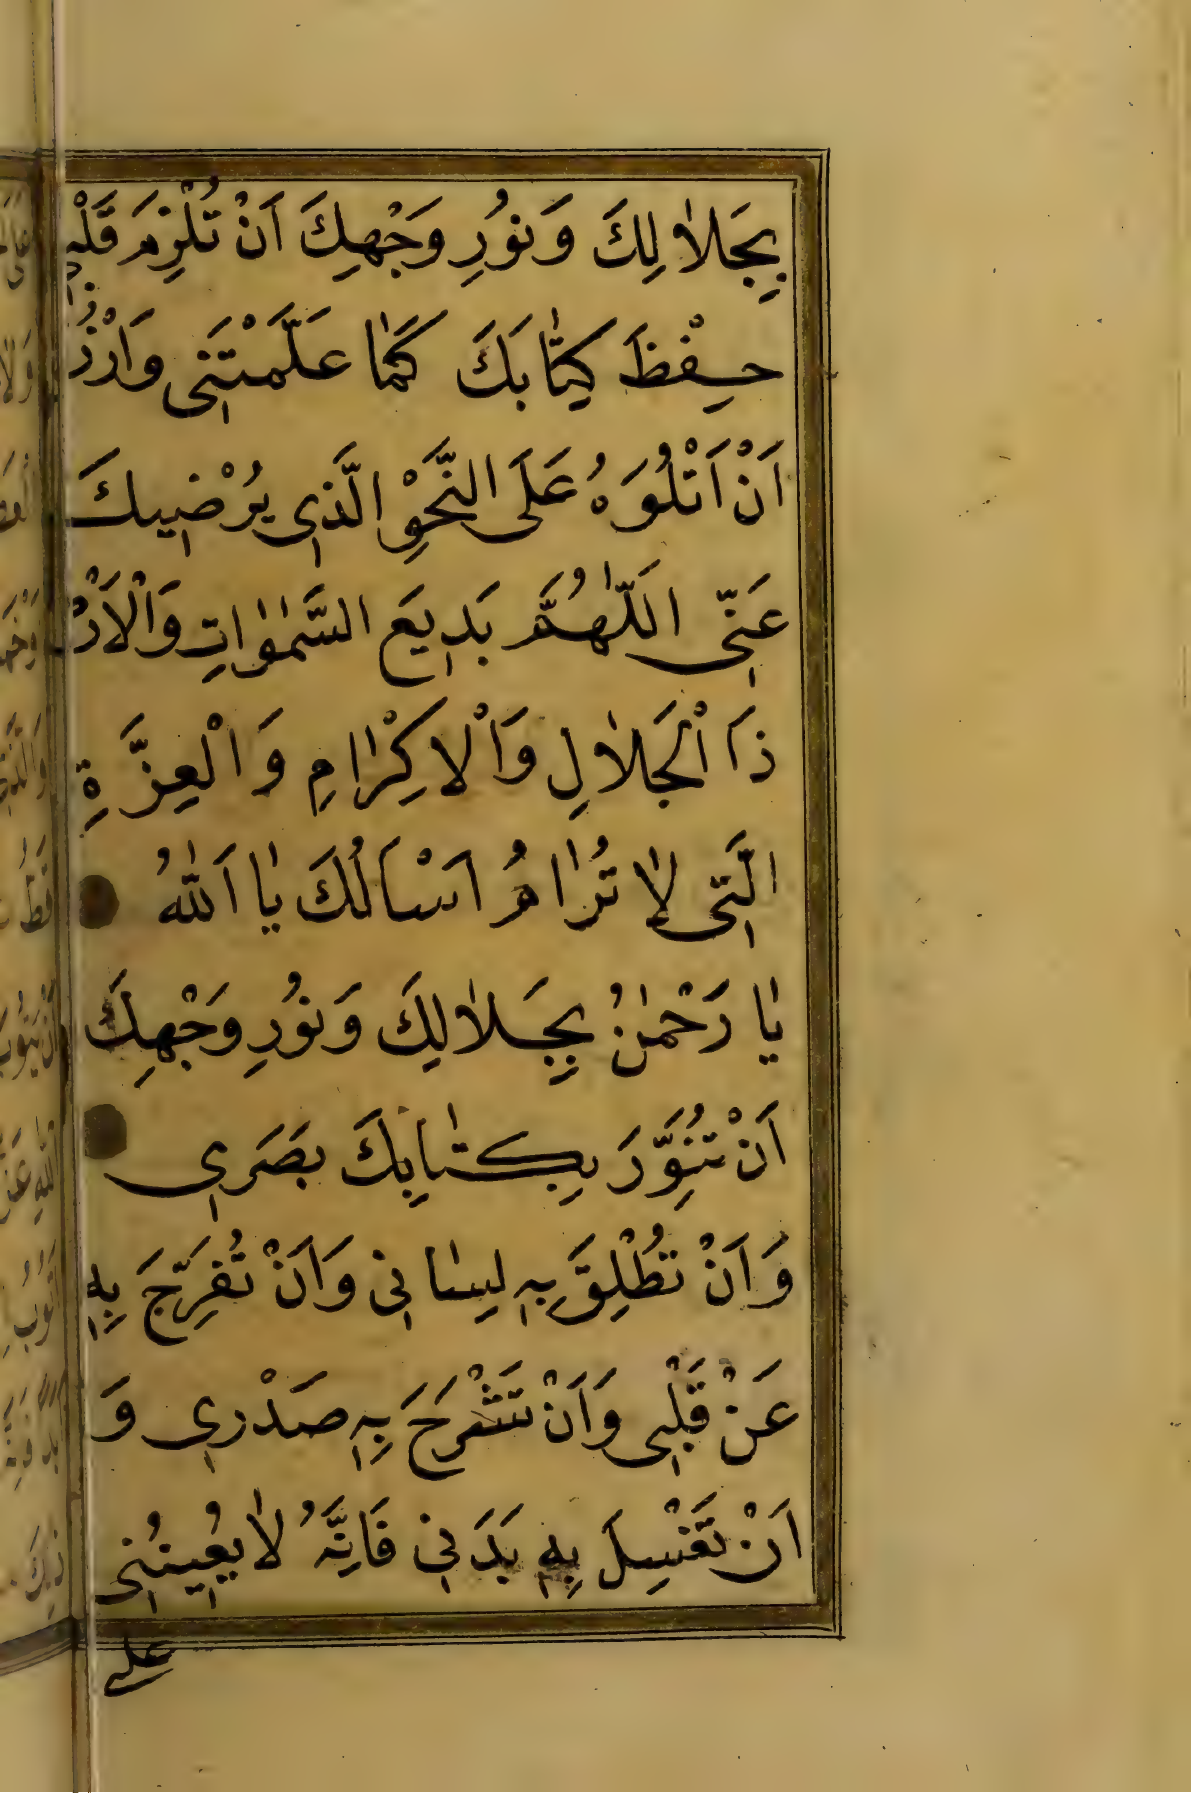 بِجَلَالِكَ وَنُورِ وَجْهِكَ اَنْ تُلْزِمَ قَلْبِي
حِفْظَ كِتَابِكَ كَمَا عَلَّمْتَنِي وَارْزُ
اَنْ اَتْلُوَهُ عَلَى النَّحْوِ الَّذِي يُرْضِيكَ
عَنِّي اَللّٰهُمَّ بَدِيعَ السَّمٰوَاتِ وَالْاَرْ
ذَا الْجَلَالِ وَالْاِكْرَامِ وَالْعِزَّةِ
الَّتِي لَا تُرَامُ اَسْاَلُكَ يَا اَللّٰهُ
يَا رَحْمٰنُ بِجَلَالِكَ وَنُورِ وَجْهِكَ
اَنْ تُنَوِّرَ بِكِتَابِكَ بَصَرِي
وَاَنْ تُطْلِقَ بِهِ لِسَانِي وَاَنْ تُفَرِّجَ بِهِ
عَنْ قَلْبِي وَاَنْ تَشْرَحَ بِهِ صَدْرِي وَ
اَنْ تَغْسِلَ بِهِ بَدَنِي فَاِنَّهُ لَا يُعِينُنِي
عَلَى